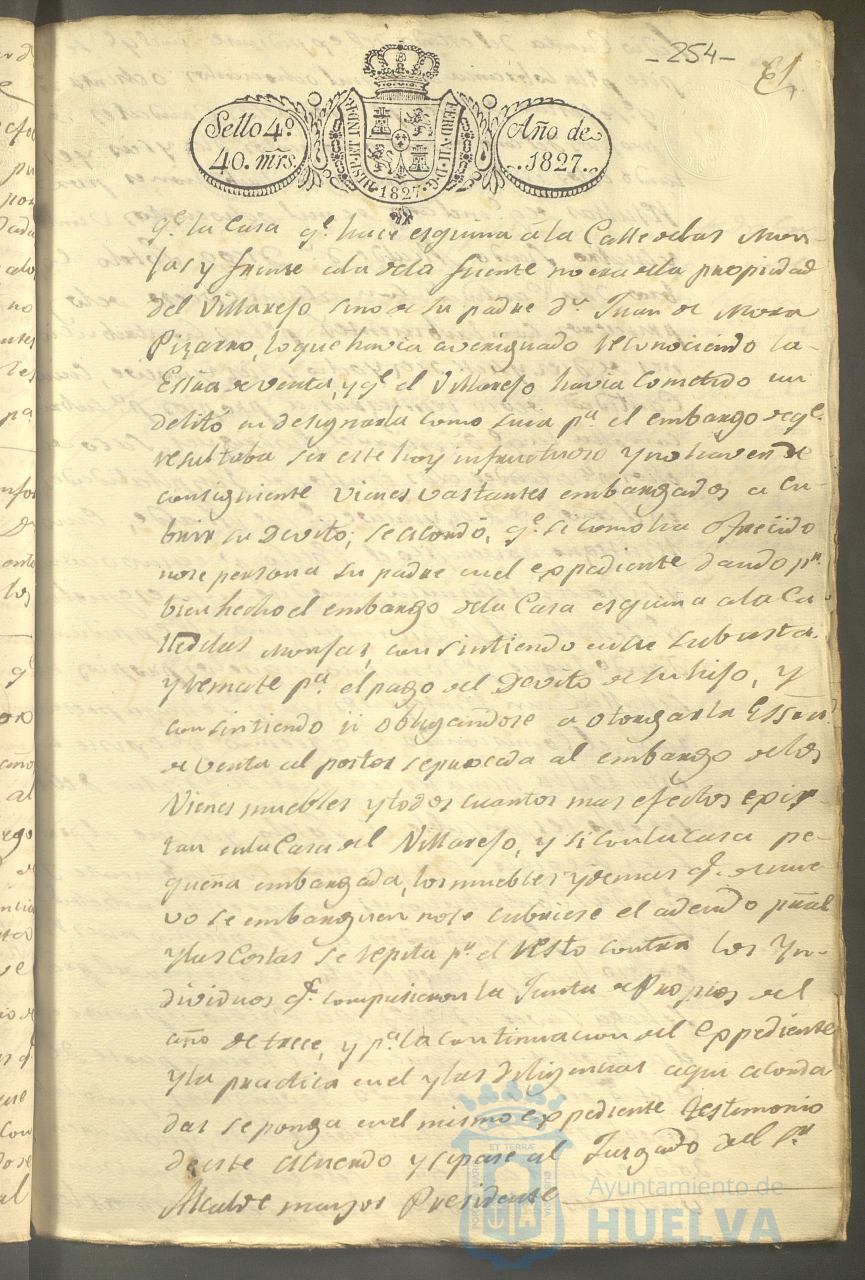 -254-
51
Sello 4º
40. mrs.
HISP. ET INDR
FERD. VII. D. G.
1827
Año de
1827.
qe. la Casa qe. hace esquina á la Calle delas Mon-
jas y frente ala dela fuente no era dela propiedad
del Villarejo sino de su padre dn. Juan de Mora
Pizarro, lo que havia averiguado reconociendo la
Essra de venta, y qe. el Villarejo havia cometido un
delito en designarla como suia pa. el embargo de qe.
resultaba ser este hoy infructuoso y no haver de
consiguiente vienes vastantes embargados a cu-
brir su Devito; se acordó, qe. si como ha ofrecido
no se persona su padre en el expediente dando pr.
bien hecho el embargo dela Casa esquina ala Ca-
lle delas Monjas, consintiendo en su subasta
y remate pa. el pago del Devito de su hijo, y
consintiendo ii obligandose á otorgar la Essra
de venta al postor se proceda al embargo de los
Vienes muebles y todos cuantos mas efectos exis-
tan en la Casa del Villarejo, y si con la casa pe-
queña embargada, los muebles y demas qe. de nue-
vo se embarguen no se cubriese el adeudo pral
y las Costas se repita pr. el resto contra los Yn-
dividuos qe. compusieron la Junta de Propios del
año de trece, y pa. la continuacion del expediente
y la practica en el y las diligencias aqui acorda
das se ponga en el mismo expediente testimonio
de este acuerdo y se pase al Juzgado del Sr.
Alcalde mayor Presidente
Ayuntamiento de
HUELVA